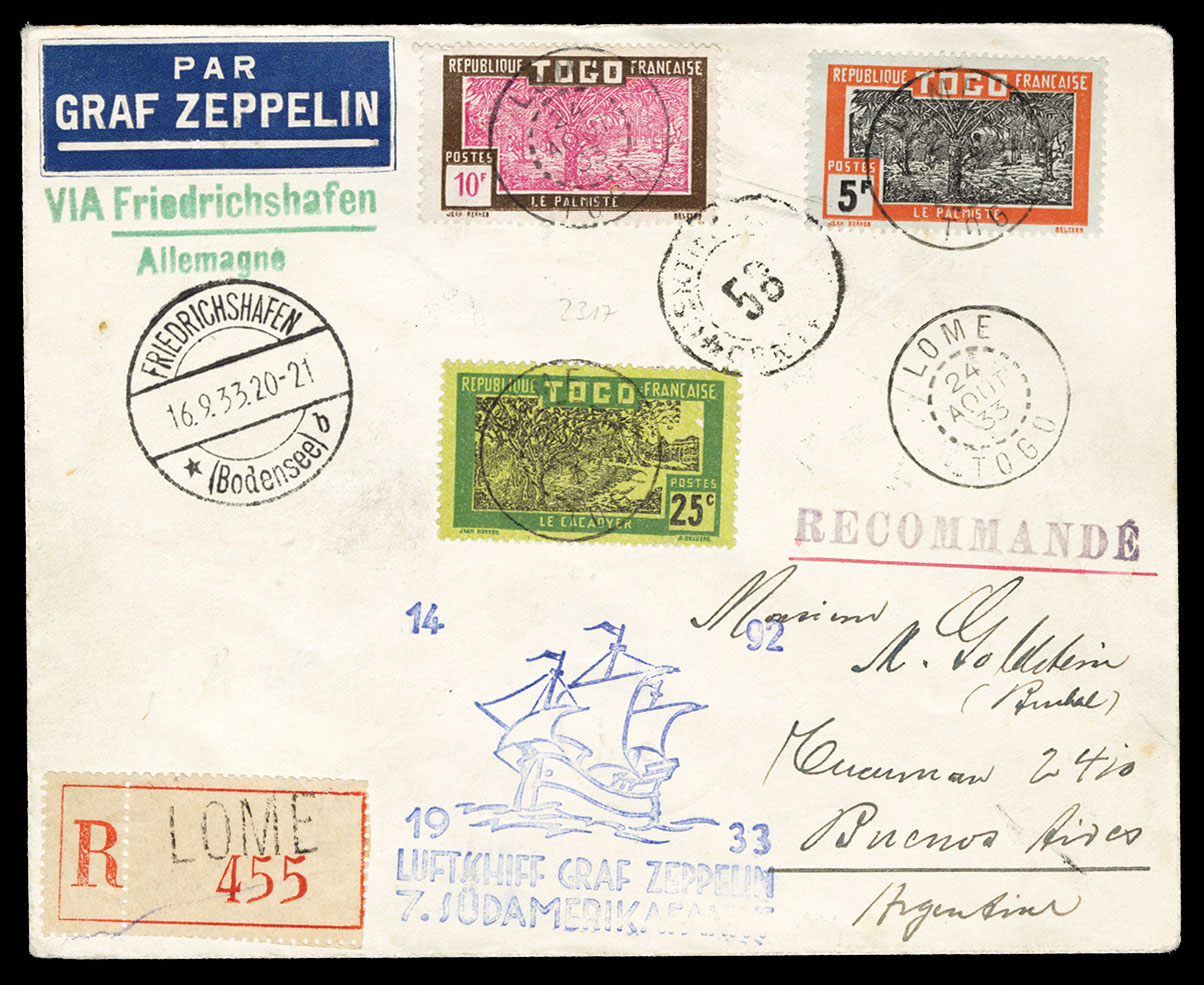 PAR
GRAF ZEPPELIN
VIA Friedrichshafen
Allemagne
REPUBLIQUE TOGO FRANÇAISE
POSTES
10F
LE PALMISTE
REPUBLIQUE TOGO FRANÇAISE
POSTES
5F
LE PALMISTE
FRIEDRICHSHAFEN
16.9.33.20-21
(Bodensee) b
2317
58
LOME
24
AOUT
33
TOGO
REPUBLIQUE TOGO FRANÇAISE
POSTES
25c
LE CACAOYER
RECOMMANDÉ
Monsieur
M. Goldstein
Tucuman 2410
Buenos Aires
Argentine
14 92
19 33
LUFTSCHIFF GRAF ZEPPELIN
7. SÜDAMERIKAFAHRT
R LOME
455